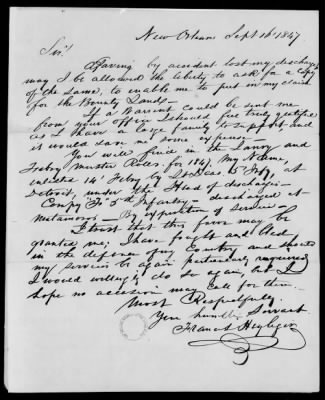 New Orleans Sept 16th 1847
Sir,
Having by accident lost my discharge
may I be allowed the liberty to ask for a Copy
of the Same, to enable me to put in my claim
for the Bounty Lands.
If a Warrant could be sent me
from your office I should feel truly gratified
as I have a large family to support and
it would save me some expense
You will find in the Janry and
Febry Muster Roles, for 1847 My Name,
enlisted 14 Febry by
Detroit, under the Head of discharges—
Compy "F" 5th Infantry— discharged at
Matamoros— By expiration of service—
I trust that this favor may be
granted me; I have fought and bled
in the defence of my Country and should
my services be again particularly required
I would willingly do so again, but I
hope no accession may call for them.
Most Respectfully
Your humble Servant
Francis Heyliger